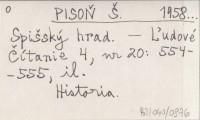 o PISOŇ Š. 1958...
Spišský hrad. – Ľudové
čítanie 4, nr 20: 554-
-555, il.
Historia.